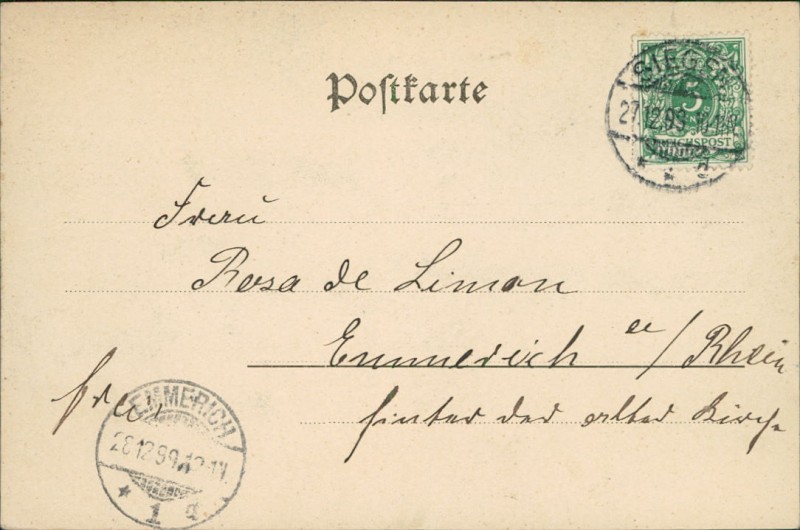 Postkarte
SIEGEN
27.12.99
5
REICHSPOST
Frau
Rosa de Limon
Emmerich a/Rhein
frei,
hinter der alten Kirche
EMMERICH
28.12.99
* 1 d